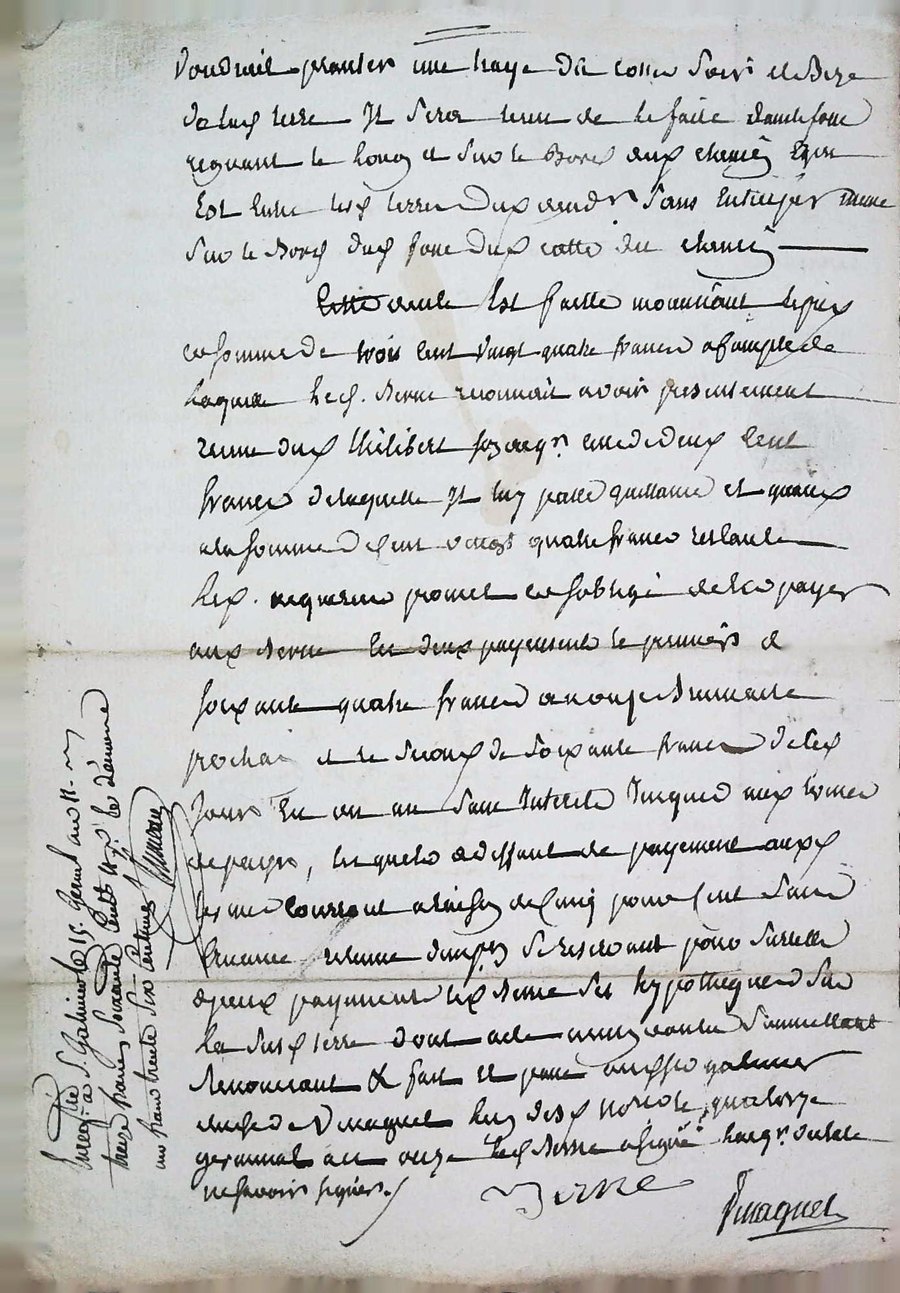 voudroit planter une haye du cotté soir et Bize
dela dt terre Il sera tenu de le faire dans le fossé
regnant le long et sur le Bord dud chemin
Est Entre les d terres dud vendr sans Entreper
sur le Bord dud fossé dud cotté du chemin
Cette vente Est faitte moyenant le prix
et somme de trois Cent vingt quatre francs acompte de
laquelle led. Verne reconnait avoir presentement
reçue dud Philibert acqr. celle de deux Cent
francs de laquelle Il luy passe quittance et quand
a la somme de Cent vingt quatre francs restante
led. acquereur promet et soblige de les payer
aud Verne En deux payements le premier de
soixante quatre francs a onze Brumaire
prochain et le second de soixante francs de ce d
jour En un an sans Interets Jusques aux termes
de payes, lesquels a deffaut de payement aux d
termes courront a raison de Cinq pour Cent sans
retenue se reservant pour surette
payements led Verne ses hypotheques sur
la susd terre dont acte soumettant
Renonceant & fait et passé a st galmier
etude de Vmaquet luy des d Notaire quatorze
germinal an onze led Verne a signé Lacqr.
ne savoir signer
Verne
Vmaquet
Enreg. à St Galmier le 15. Germal an 11.
treize francs soixante
un franc trente six centimes